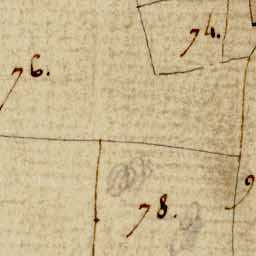 74.
76.
78.